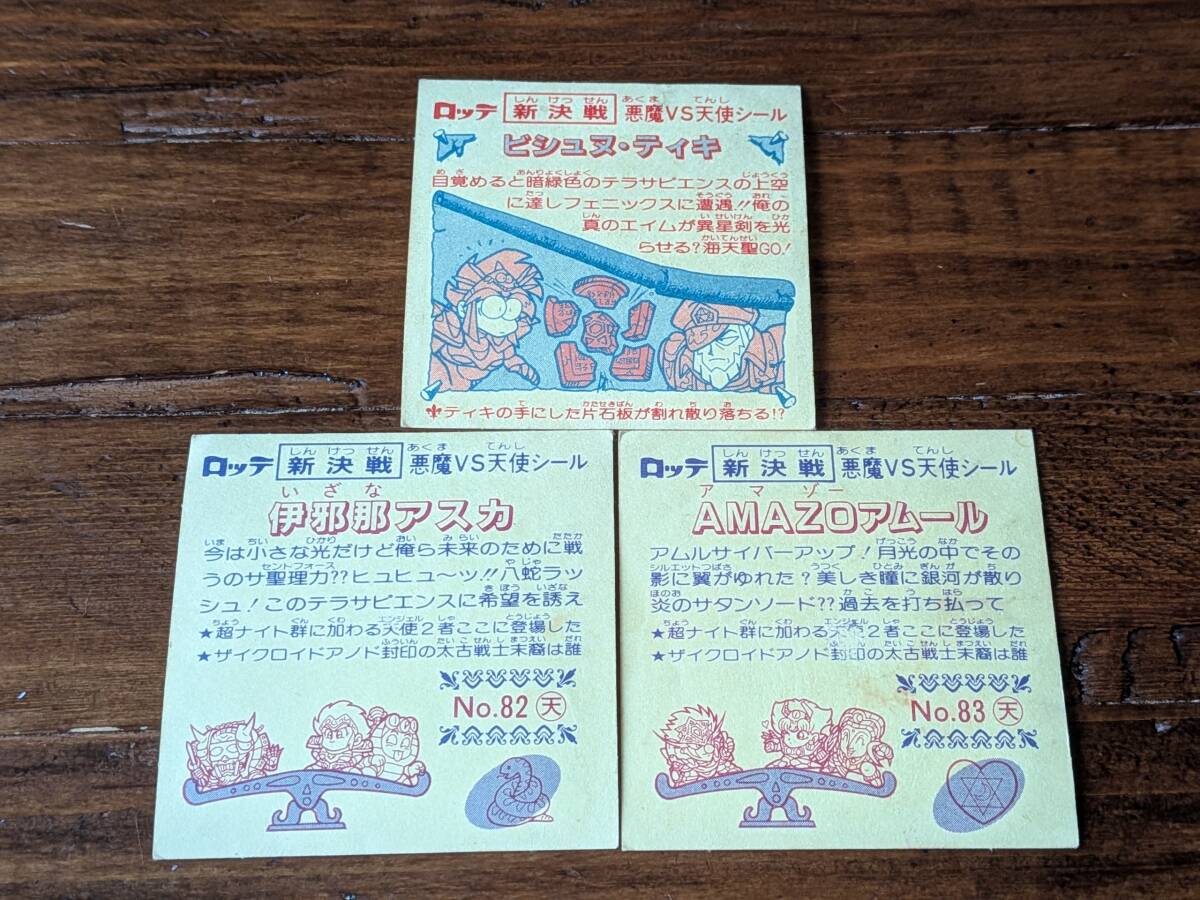 ロッテ 新決戦 悪魔VS天使シール
ビシュヌ・ティキ
目覚めると暗緑色のテラサピエンスの上空
に達しフェニックスに遭遇!!俺の
真のエイムが異星剣を光
らせる?海天聖GO!
ティキの手にした片石板が割れ散り落ちる!?
ロッテ 新決戦 悪魔VS天使シール
伊邪那アスカ
今は小さな光だけど俺ら未来のために戦
うのサ聖理力??ヒュヒュ〜ッ!!八蛇ラッ
シュ!このテラサピエンスに希望を誘え
★超ナイト群に加わる天使2者ここに登場した
★ザイクロイドアノド封印の太古戦士末裔は誰
No.82 天
ロッテ 新決戦 悪魔VS天使シール
AMAZOアムール
アムルサイバーアップ!月光の中でその
影に翼がゆれた?美しき瞳に銀河が散り
炎のサタンソード??過去を打ち払って
★超ナイト群に加わる天使2者ここに登場した
★ザイクロイドアノド封印の太古戦士末裔は誰
No.83 天